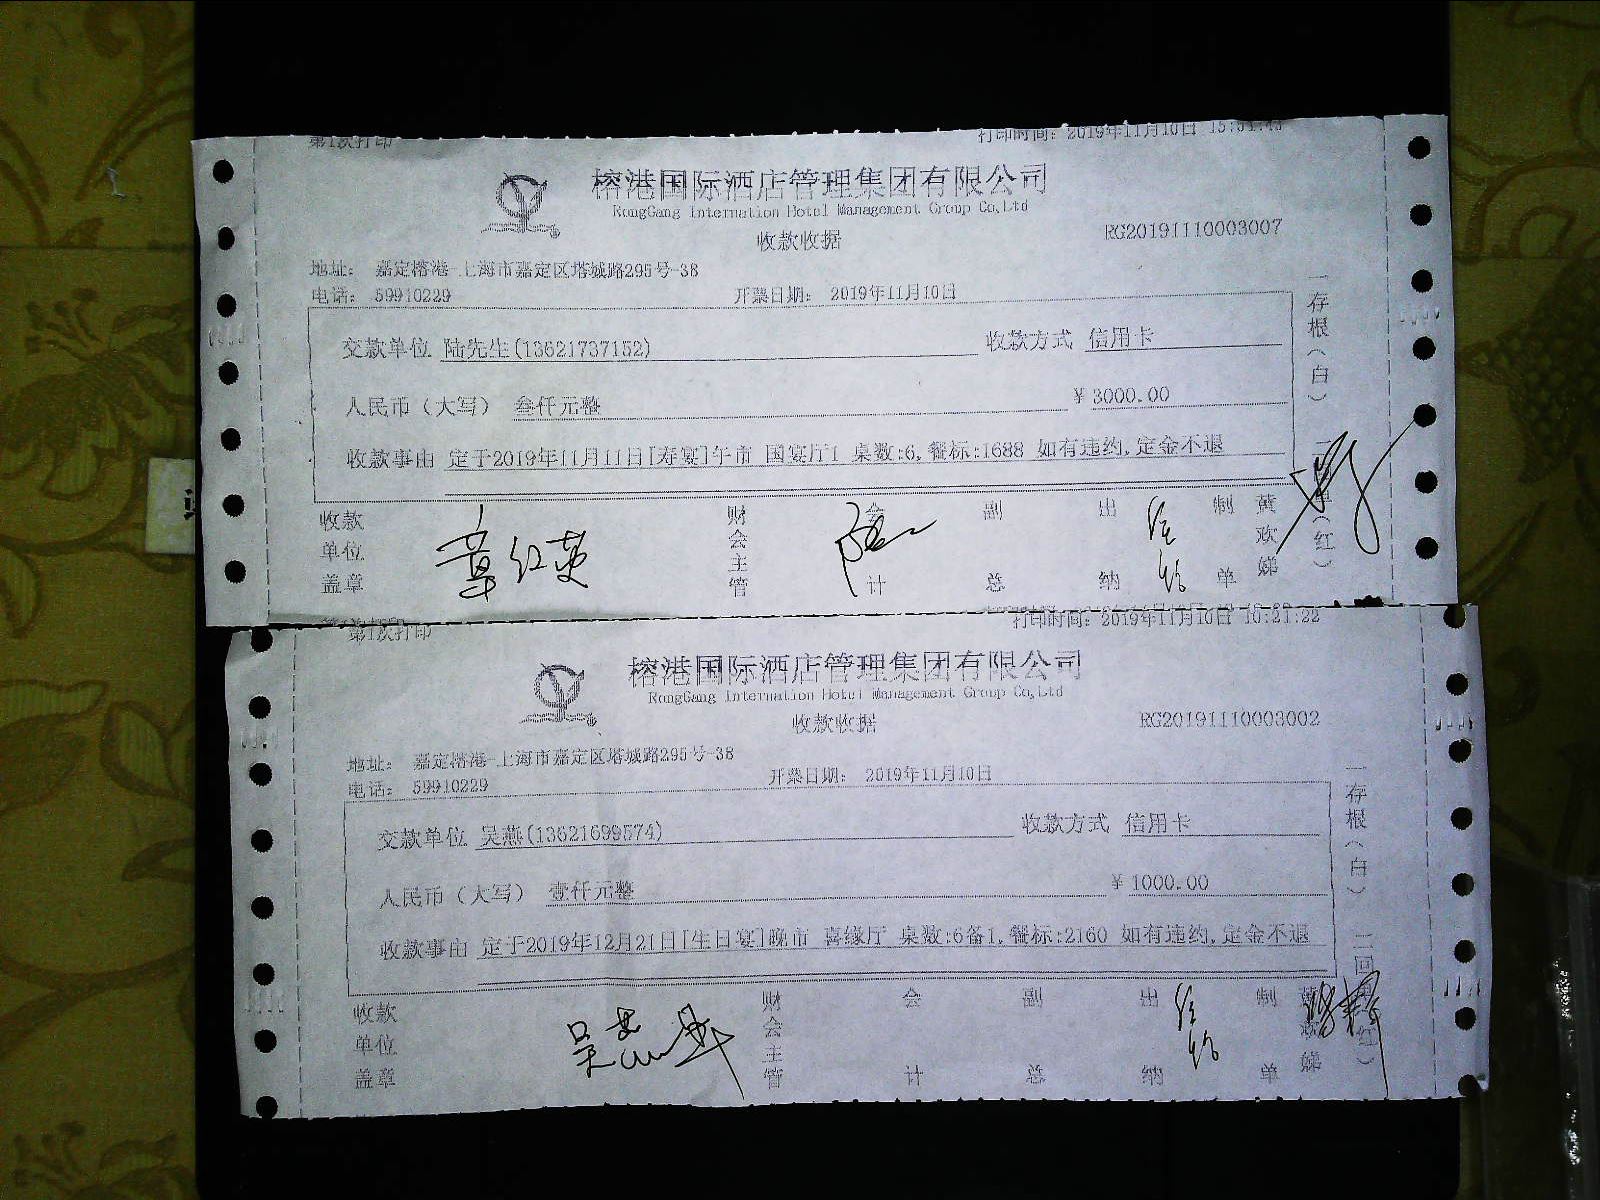 第1次打印 打印时间：2019年11月10日 15:51:45
榕港国际酒店管理集团有限公司
RongGang Internation Hotel Management Group Co,Ltd
收款收据 RG20191110003007
地址： 嘉定榕港-上海市嘉定区塔城路295号-38
电话： 59910229 开票日期： 2019年11月10日
交款单位 陆先生(13621737152) 收款方式 信用卡
人民币（大写） 叁仟元整 ￥3000.00
收款事由 定于2019年11月11日[寿宴]午市 国宴厅1 桌数:6,餐标:1688 如有违约,定金不退
收款单位盖章 章红英 财会主管 会计 副总 出纳 制单 黄欢娣
一存根（白）
（红）
第1次打印 打印时间：2019年11月10日 10:21:22
榕港国际酒店管理集团有限公司
RongGang Internation Hotel Management Group Co,Ltd
收款收据 RG20191110003002
地址： 嘉定榕港-上海市嘉定区塔城路295号-38
电话： 59910229 开票日期： 2019年11月10日
交款单位 吴燕(13621699574) 收款方式 信用卡
人民币（大写） 壹仟元整 ￥1000.00
收款事由 定于2019年12月21日[生日宴]晚市 喜缘厅 桌数:6备1,餐标:2160 如有违约,定金不退
收款单位盖章 财会主管 会计 副总 出纳 制单 黄欢娣
一存根（白） 二回